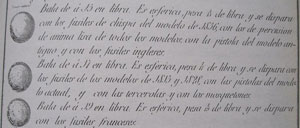 Bala de á 13 en libra. Es esferica, pesa de libra, y se dispara
con los fusiles de chispa del modelo de 1836, con los de percusion
de anima lisa de todos los modelos, con la pistola del modelo anti-
guo y con los fusiles ingleses.
Bala de á en libra. Es esferica, pesa de libra y se dispara con
los fusiles de los modelos de y con las pistolas del mode-
lo actual, y con las tercerolas y con los mosquetones
Bala de á 19 en libra. Es esferica, pesa de libra y se dispara
con los fusiles franceses